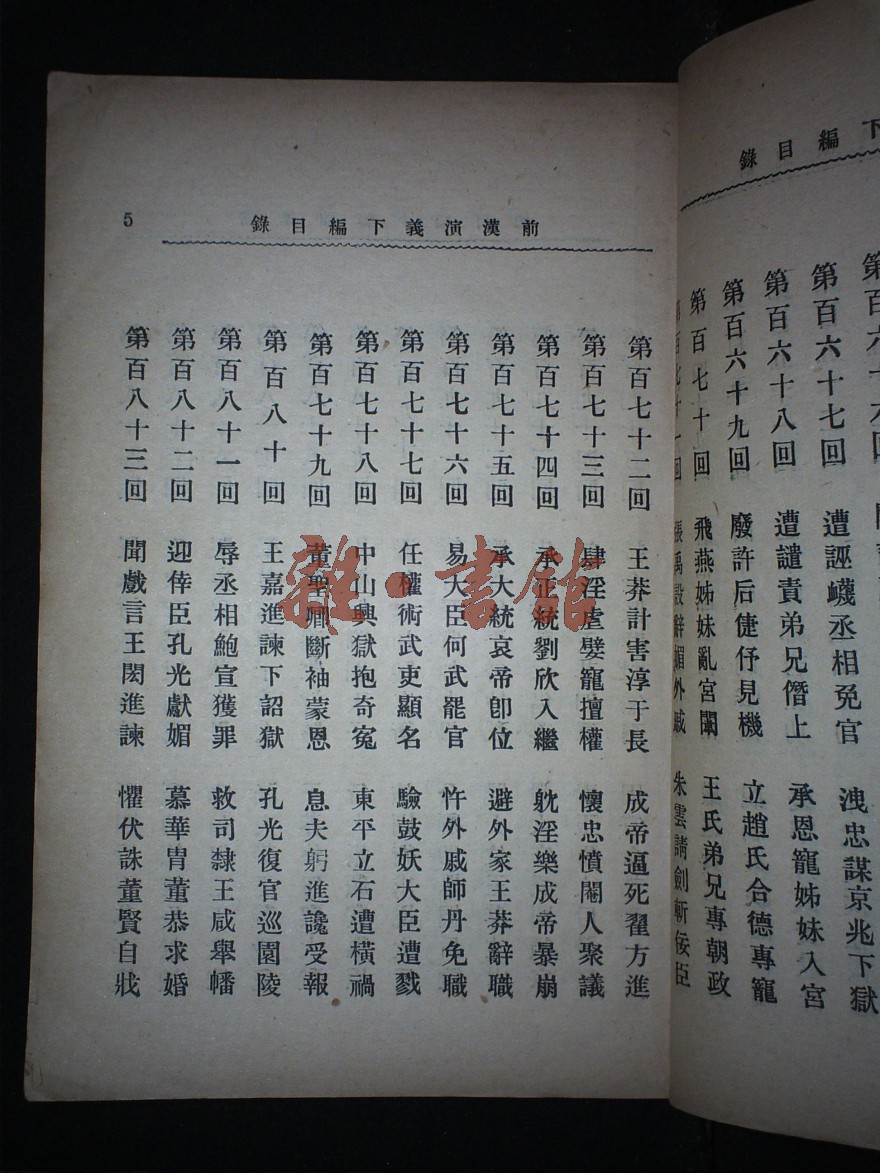 下編目錄
第百六十七回　遭誣衊丞相免官　洩忠謀京兆下獄
第百六十八回　遭譴責弟兄僭上　承恩寵姊妹入宮
第百六十九回　廢許后倢伃見機　立趙氏合德專寵
第百七十回　飛燕姊妹亂宮闈　王氏弟兄專朝政
第百七十一回　張禹設辭媚外戚　朱雲請劍斬佞臣
前漢演義下編目錄
5
第百七十二回　王莽計害淳于長　成帝逼死翟方進
第百七十三回　肆淫虐嬖寵擅權　懷忠憤閹人聚議
第百七十四回　承正統劉欣入繼　躭淫樂成帝暴崩
第百七十五回　承大統哀帝卽位　避外家王莽辭職
第百七十六回　易大臣何武罷官　忤外戚師丹免職
第百七十七回　任權術武吏顯名　驗鼓妖大臣遭戮
第百七十八回　中山興獄抱奇冤　東平立石遭橫禍
第百七十九回　董聖卿斷袖蒙恩　息夫躬進讒受報
第百八十回　王嘉進諫下詔獄　孔光復官巡園陵
第百八十一回　辱丞相鮑宣獲罪　救司隸王咸舉幡
第百八十二回　迎倖臣孔光獻媚　慕華胄董恭求婚
第百八十三回　聞戲言王閎進諫　懼伏誅董賢自戕
雜·書館